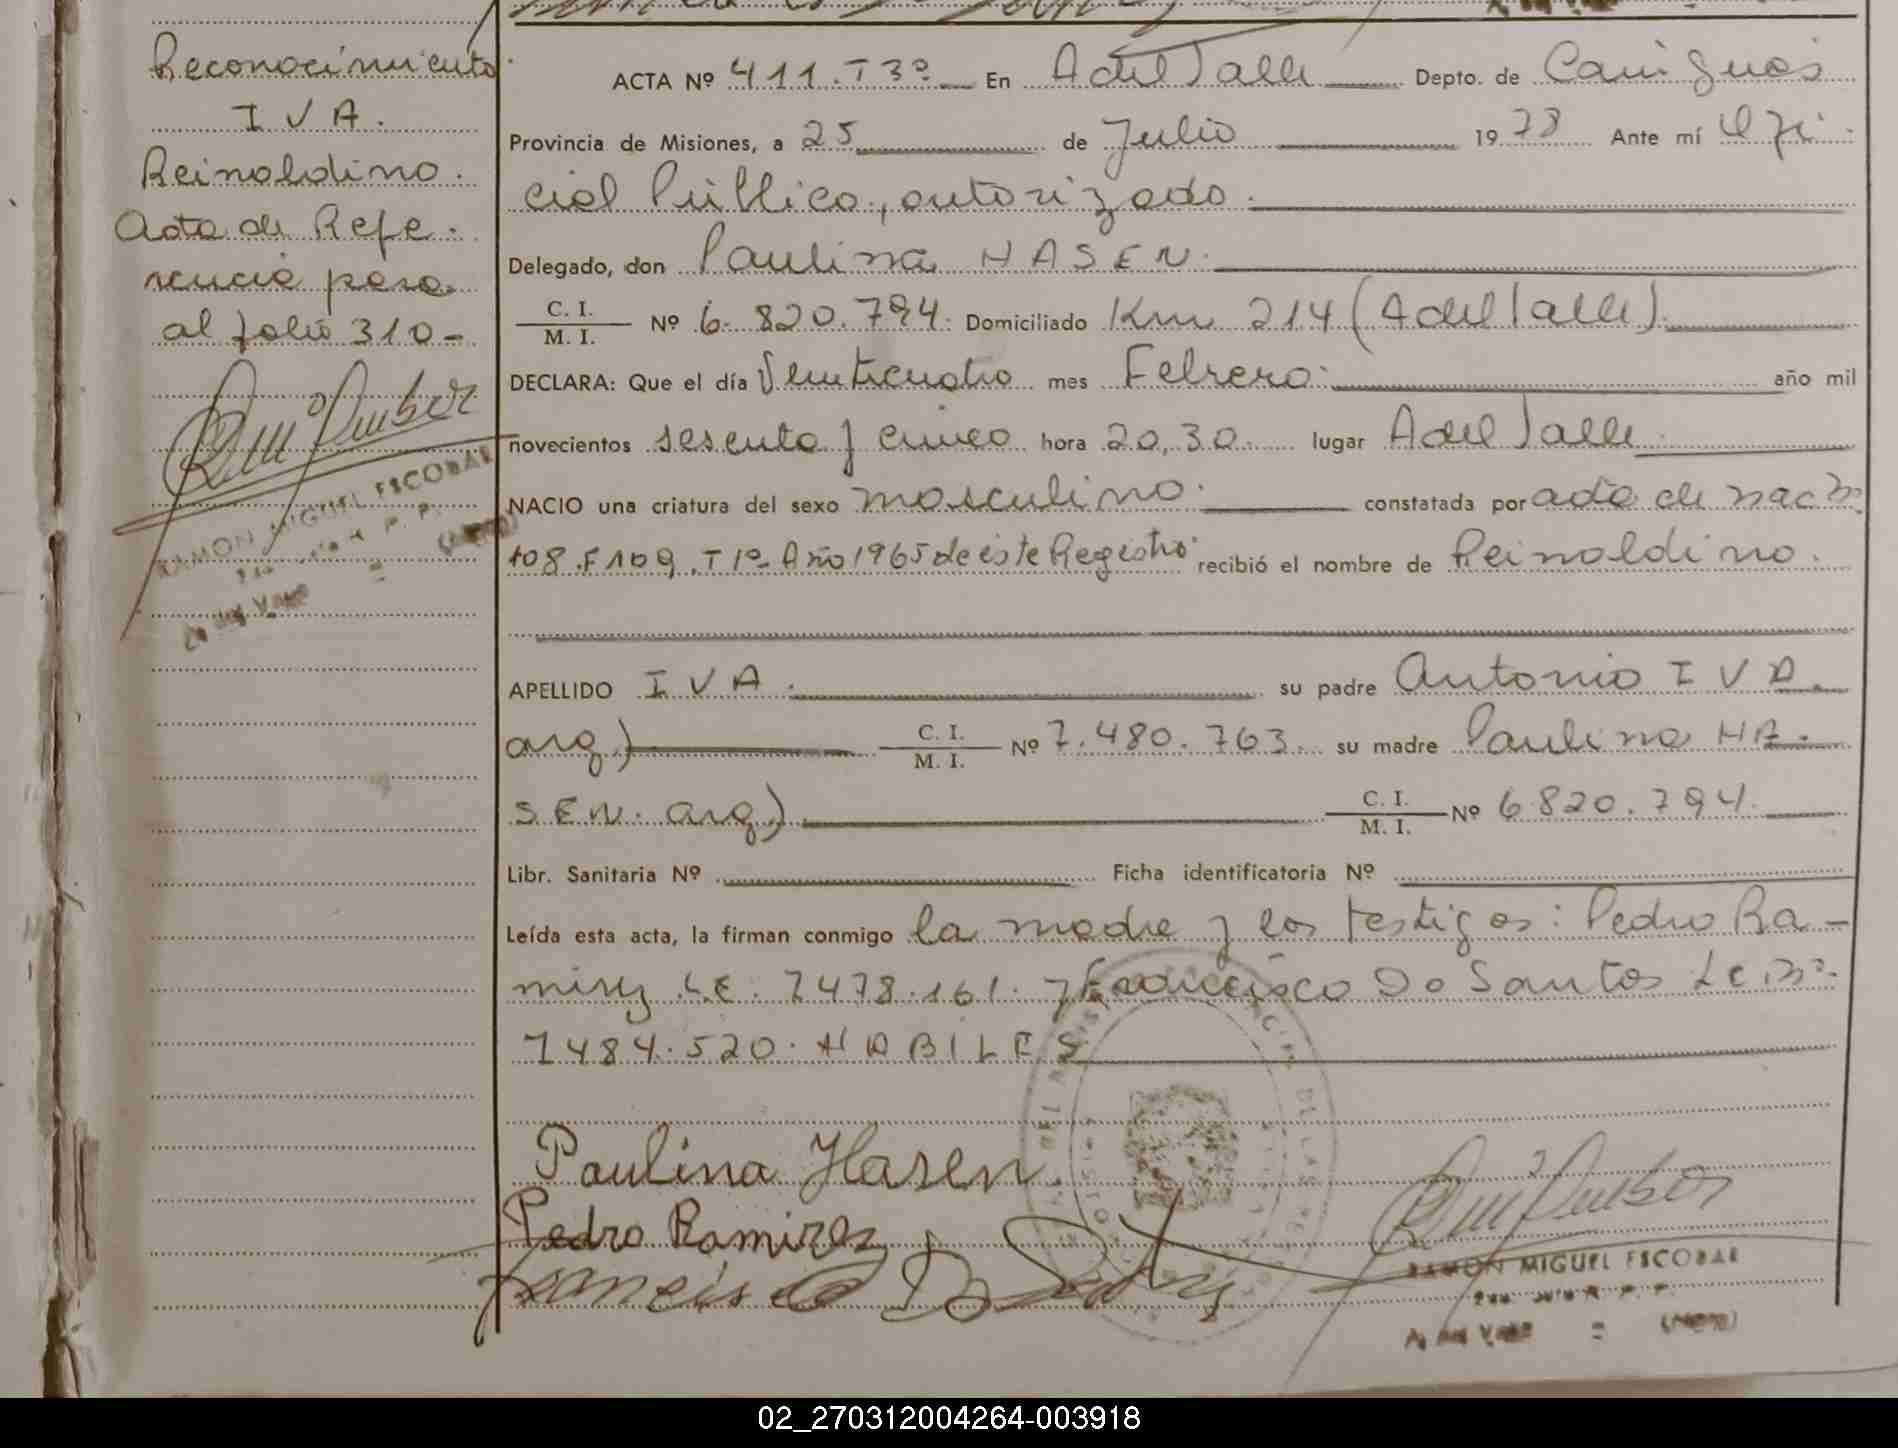 Reconocimiento
I V A.
Reinoldino.
Acta de Refe-
rencia pasa
al folio 310-
RAMON MIGUEL ESCOBAR
ACTA Nº 411. T 3º En A del Valle Depto. de Cainguás
Provincia de Misiones, a 25 de Julio 1978 Ante mí Ofi-
cial Público, autorizado.
Delegado, don Paulina HASEN.
C. I.
M. I. Nº 6.820.794. Domiciliado Km 214 (A del Valle).
DECLARA: Que el día Veinticuatro mes Febrero. año mil
novecientos sesenta y cinco hora 20,30. lugar A del Valle
NACIO una criatura del sexo masculino. constatada por acta de nac Nº
108. F 109. T 1º. Año 1965 de este Registro. recibió el nombre de Reinoldino.
APELLIDO I V A. su padre Antonio I V A.
arg) C. I.
M. I. Nº 7.480.763. su madre Paulina HA-
SEN. arg) C. I.
M. I. Nº 6820.794.
Libr. Sanitaria Nº Ficha identificatoria Nº
Leída esta acta, la firman conmigo la madre y los testigos: Pedro Ra-
mirez L.E. 7478.161. y Francisco Do Santos L E Nº
7484.520. HABILES
Paulina Hasen
Pedro Ramirez
Francisco Do Santos
RAMON MIGUEL ESCOBAR
A. del Valle = (Mnes)
02_270312004264-003918